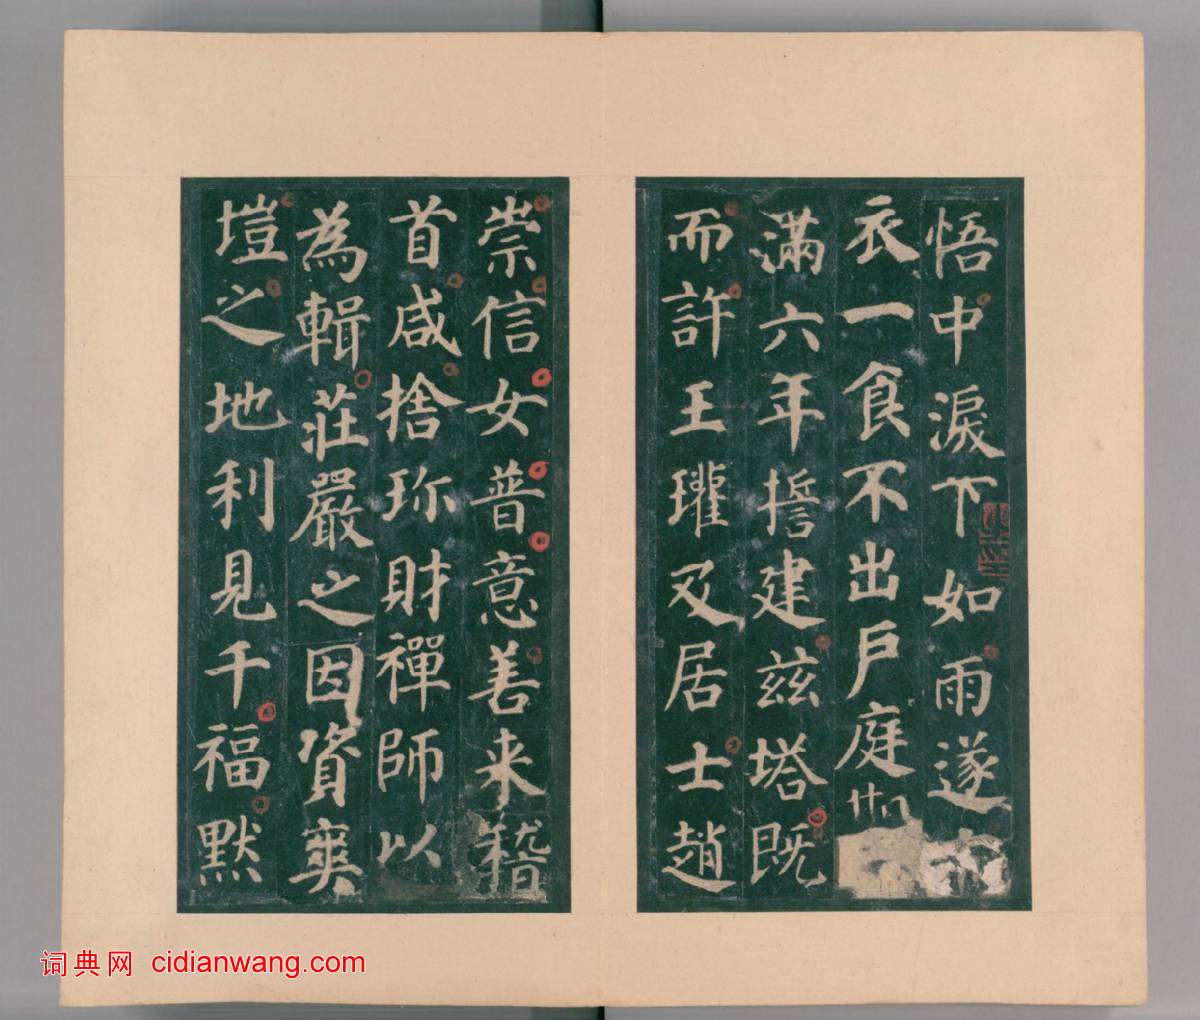 悟中淚下如雨遂
衣一食不出戶庭
滿六年誓建茲塔既
而許王瓘及居士趙
崇信女普意善來稽
首咸捨珎財禪師以
為輯莊嚴之因資爽
塏之地利見千福默
词典网 cidianwang.com